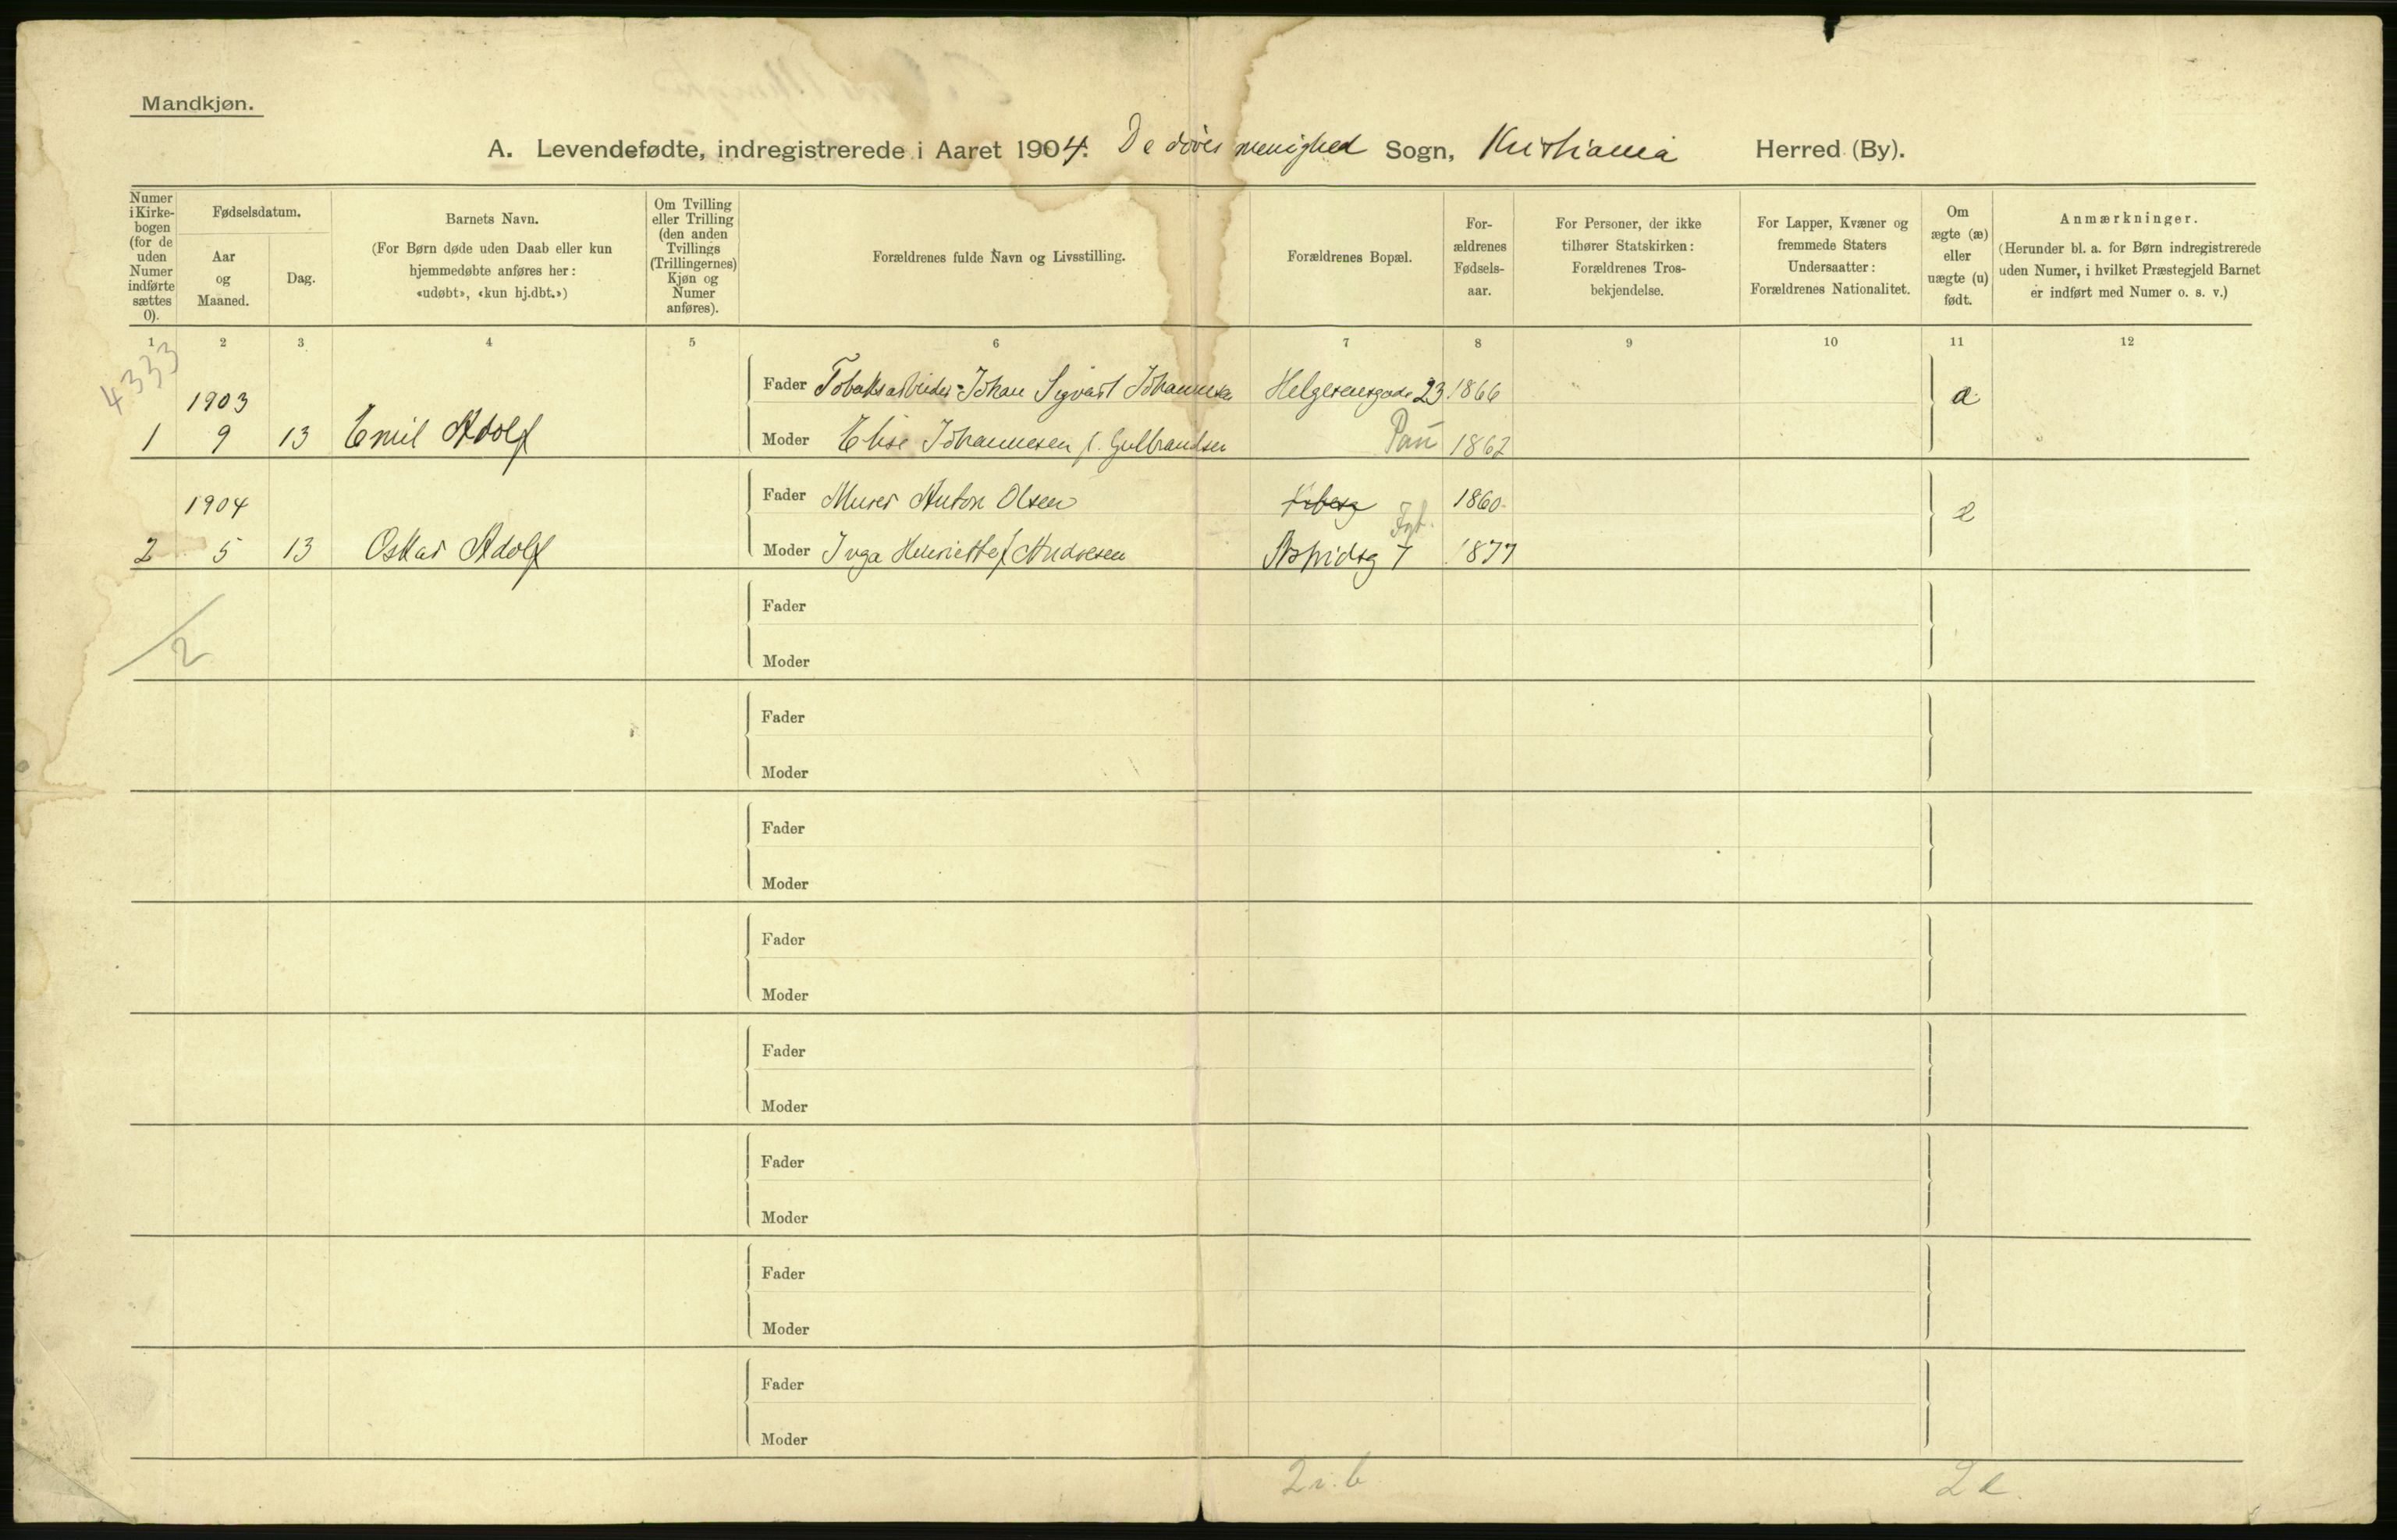 Mandkjøn.
A. Levendefødte, indregistrerede i Aaret 1904. De døves menighed Sogn, Kristiania Herred (By).
Numer
i Kirke-
bogen
(for de
uden
Numer
indførte
sættes
0).
Fødselsdatum.
Aar
og
Maaned.
Dag.
Barnets Navn.
(For Børn døde uden Daab eller kun
hjemmedøbte anføres her:
«udøbt», «kun hj.dbt.»)
Om Tvilling
eller Trilling
(den anden
Tvillings
(Trillingernes)
Kjøn og
Numer
anføres).
Forældrenes fulde Navn og Livsstilling.
Forældrenes Bopæl.
For-
ældrenes
Fødsels-
aar.
For Personer, der ikke
tilhører Statskirken:
Forældrenes Tros-
bekjendelse.
For Lapper, Kvæner og
fremmede Staters
Undersaatter:
Forældrenes Nationalitet.
Om
ægte (æ)
eller
uægte (u)
født.
Anmærkninger.
(Herunder bl. a. for Børn indregistrerede
uden Numer, i hvilket Præstegjeld Barnet
er indført med Numer o. s. v.)
1 2 3 4 5 6 7 8 9 10 11 12
4333
1903 Fader Tobaksarbeider Johan Sigvart Johannesen Helgesensgade 23 1866 æ
1 9 13 Emil Adolf Moder Elise Johannesen f. Gulbrandsen 1862
1904 Fader Murer Anton Olsen 1860. æ
2 5 13 Oskar Adolf Moder Inga Henriette f Andresen 7 1877
Fader
2
Moder
Fader
Moder
Fader
Moder
Fader
Moder
Fader
Moder
Fader
Moder
Fader
Moder
Fader
Moder
2 i. b. 2 æ.